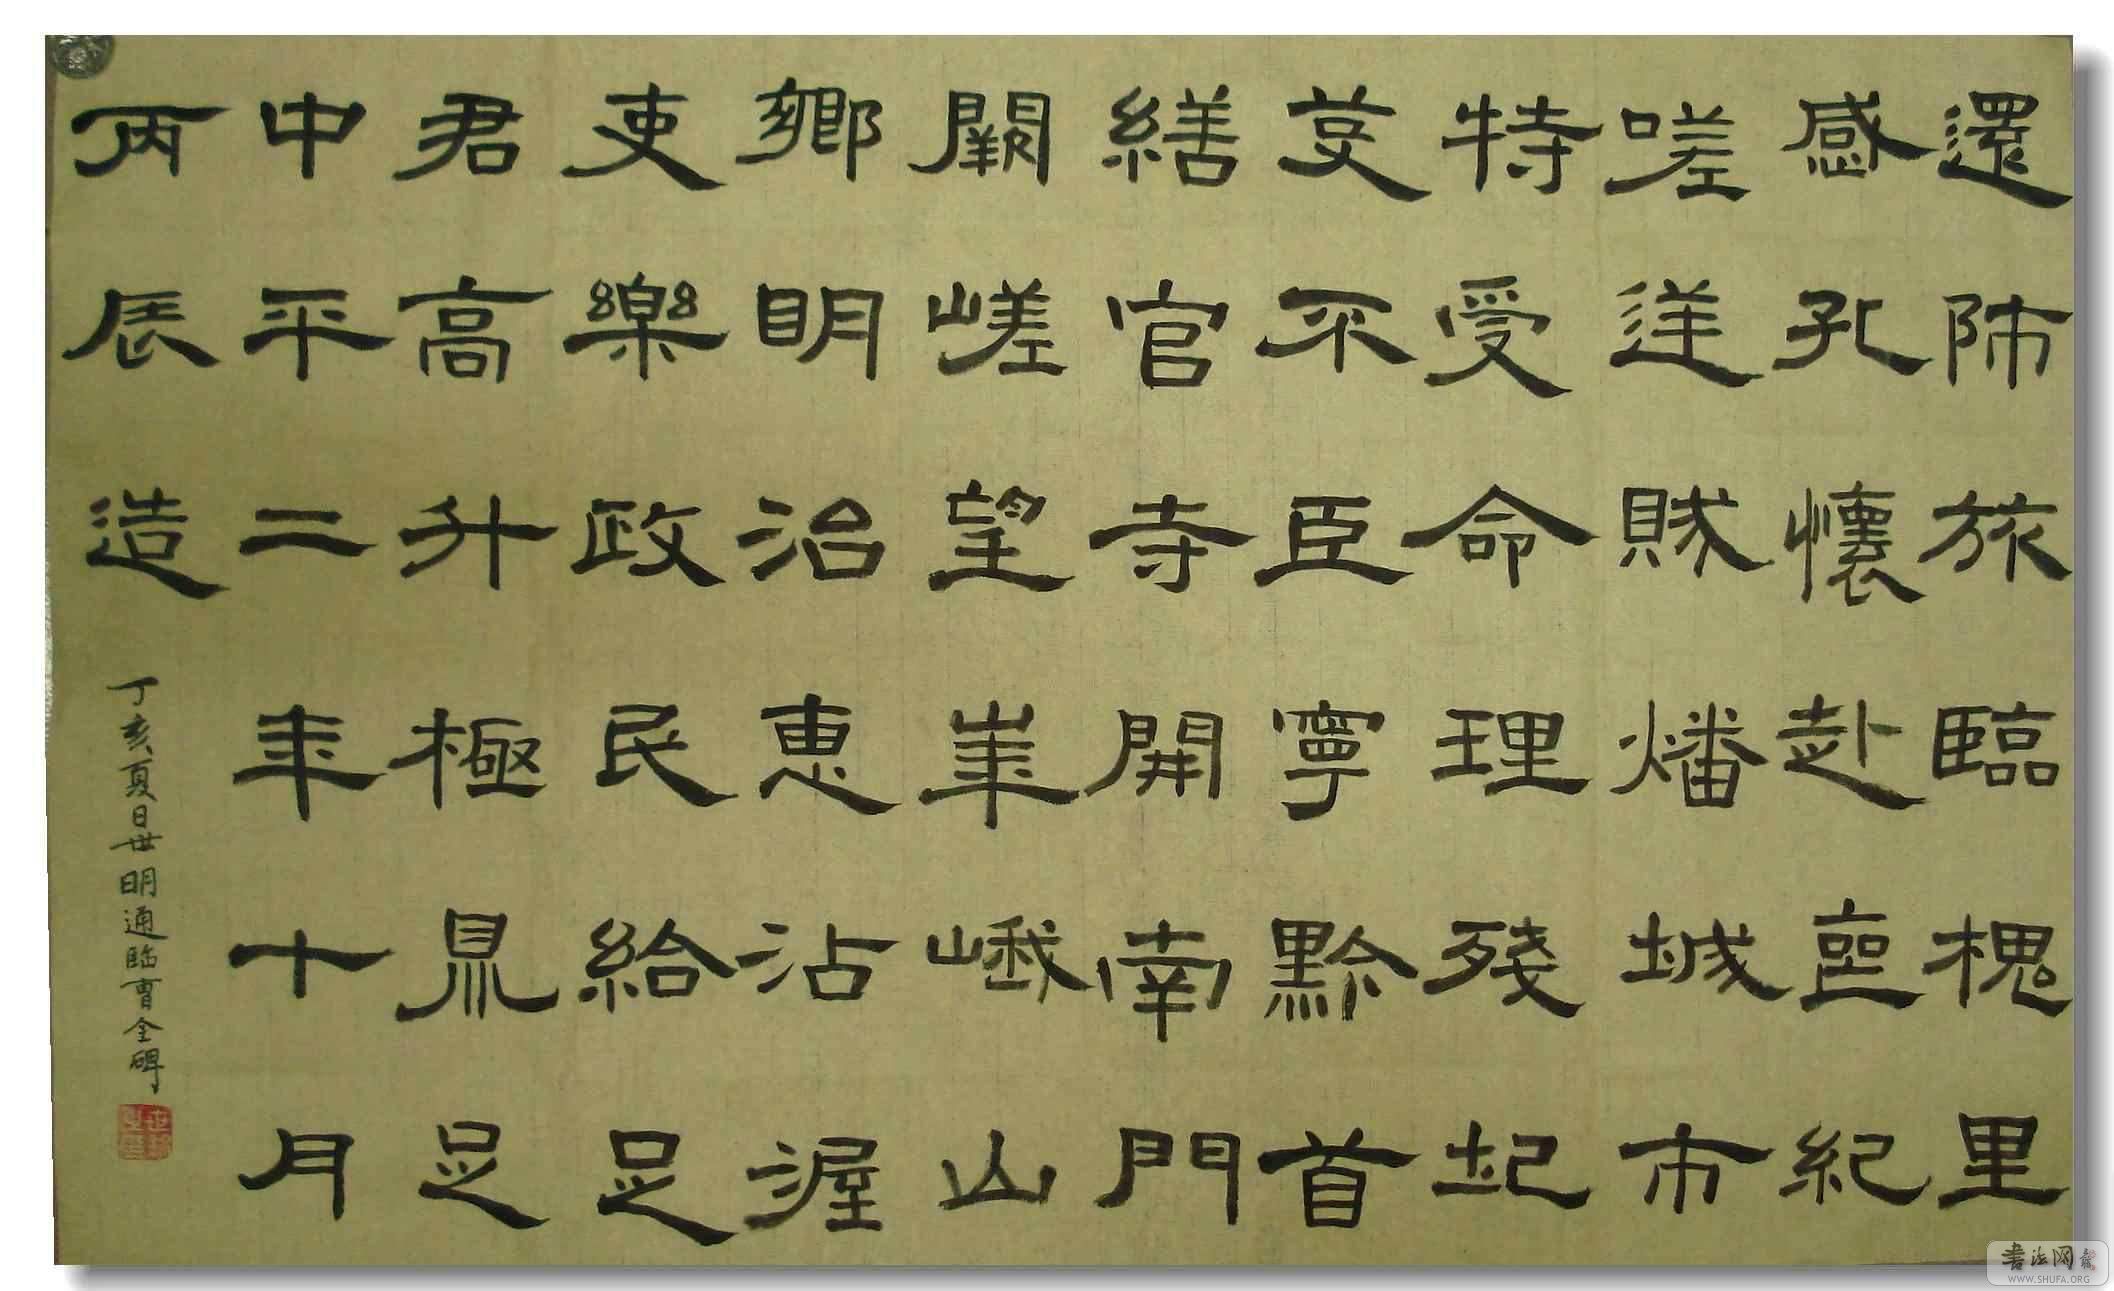 還師旅臨槐里
感孔懷赴喪紀
嗟逆賊燔城市
特受命理殘圮
芟不臣寧黔首
繕官寺開南門
闕嵯望崋峨山
鄉明治惠沾渥
吏樂政民給足
君高升極鼎足
中平二年十月
丙辰造
丁亥夏日世明通臨曹全碑
书法网
WWW.SHUFA.ORG